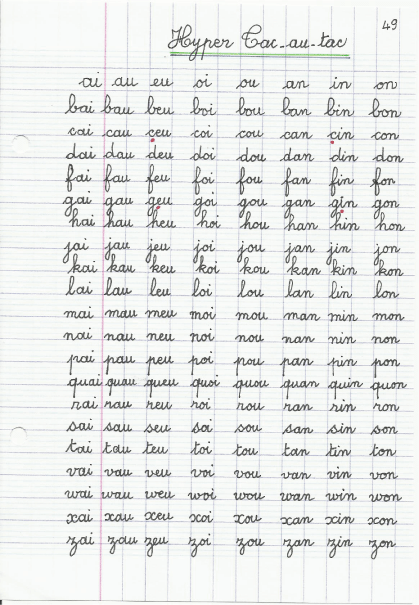 49
Hyper Tac-au-tac
ai au eu oi ou an in on
bai bau beu boi bou ban bin bon
cai cau ceu coi cou can cin con
dai dau deu doi dou dan din don
fai fau feu foi fou fan fin fon
gai gau geu goi gou gan gin gon
hai hau heu hoi hou han hin hon
jai jau jeu joi jou jan jin jon
kai kau keu koi kou kan kin kon
lai lau leu loi lou lan lin lon
mai mau meu moi mou man min mon
nai nau neu noi nou nan nin non
pai pau peu poi pou pan pin pon
quai quau queu quoi quou quan quin quon
rai rau reu roi rou ran rin ron
sai sau seu soi sou san sin son
tai tau teu toi tou tan tin ton
vai vau veu voi vou van vin von
wai wau weu woi wou wan win won
xai xau xeu xoi xou xan xin xon
zai zau zeu zoi zou zan zin zon